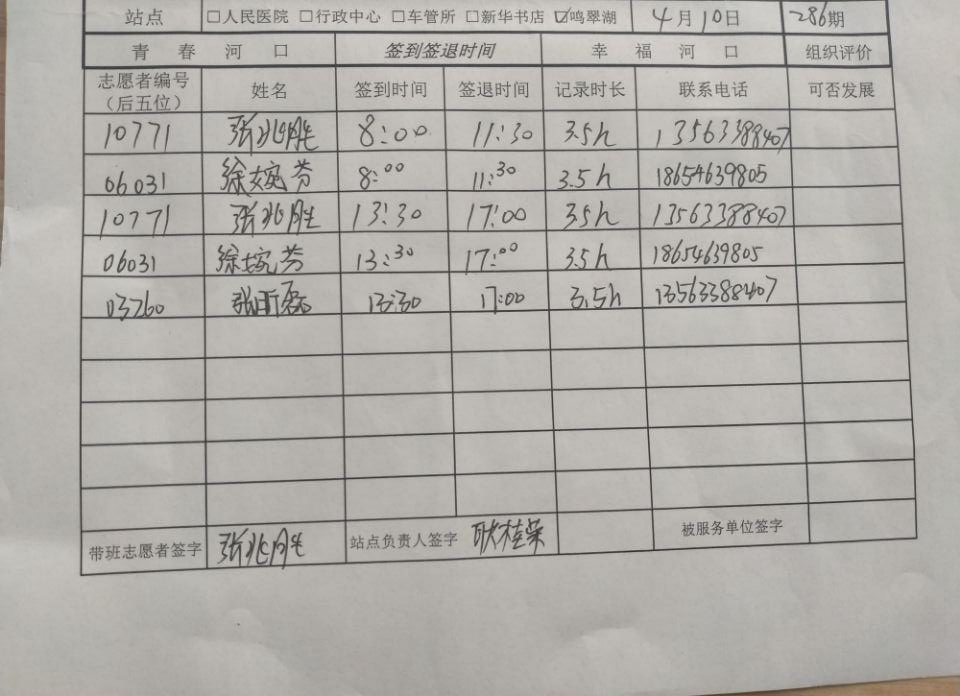 站点 □人民医院 □行政中心 □车管所 □新华书店 ☑鸣翠湖 4月10日 286期
青春河口 签到签退时间 幸福河口 组织评价
志愿者编号（后五位） 姓名 签到时间 签退时间 记录时长 联系电话 可否发展
10771 张兆胜 8:00 11:30 3.5h 13563388407
06031 徐婉芬 8:00 11:30 3.5h 18654639805
10771 张兆胜 13:30 17:00 3.5h 13563388407
06031 徐婉芬 13:30 17:00 3.5h 18654639805
03760 张 13:30 17:00 3.5h 13563388407
带班志愿者签字 张兆胜 站点负责人签字 耿桂荣 被服务单位签字